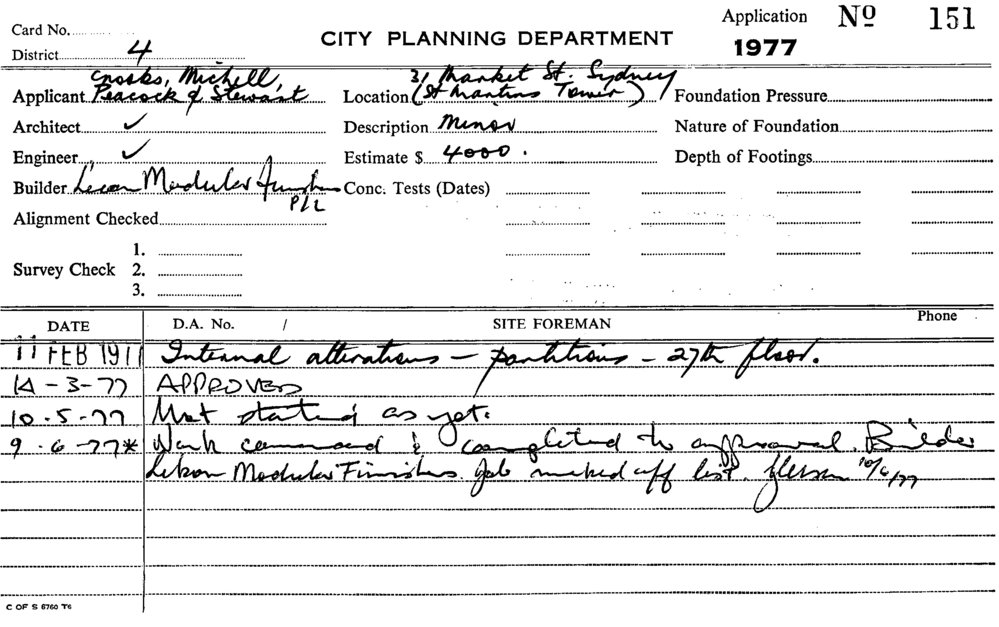 Application Nº 151
Card No.
CITY PLANNING DEPARTMENT
1977
District 4
Crooks, Michell, 31 Market St. Sydney
Applicant Peacock & Stewart Location (St Martins Tower) Foundation Pressure
Architect ✓ Description Minor Nature of Foundation
Engineer ✓ Estimate $ 4000. Depth of Footings
Builder Modular P/L Conc. Tests (Dates)
Alignment Checked
1.
Survey Check 2.
3.
DATE D.A. No. / SITE FOREMAN Phone
11 FEB 1977 Internal alterations - partitions - 27th floor.
14-3-77 APPROVED
10.5.77 Not started as yet.
9.6.77* Work commenced & completed to approval. Builder
Modular Finishes. Job marked off list. 10/6/77
C OF S 6760 T6